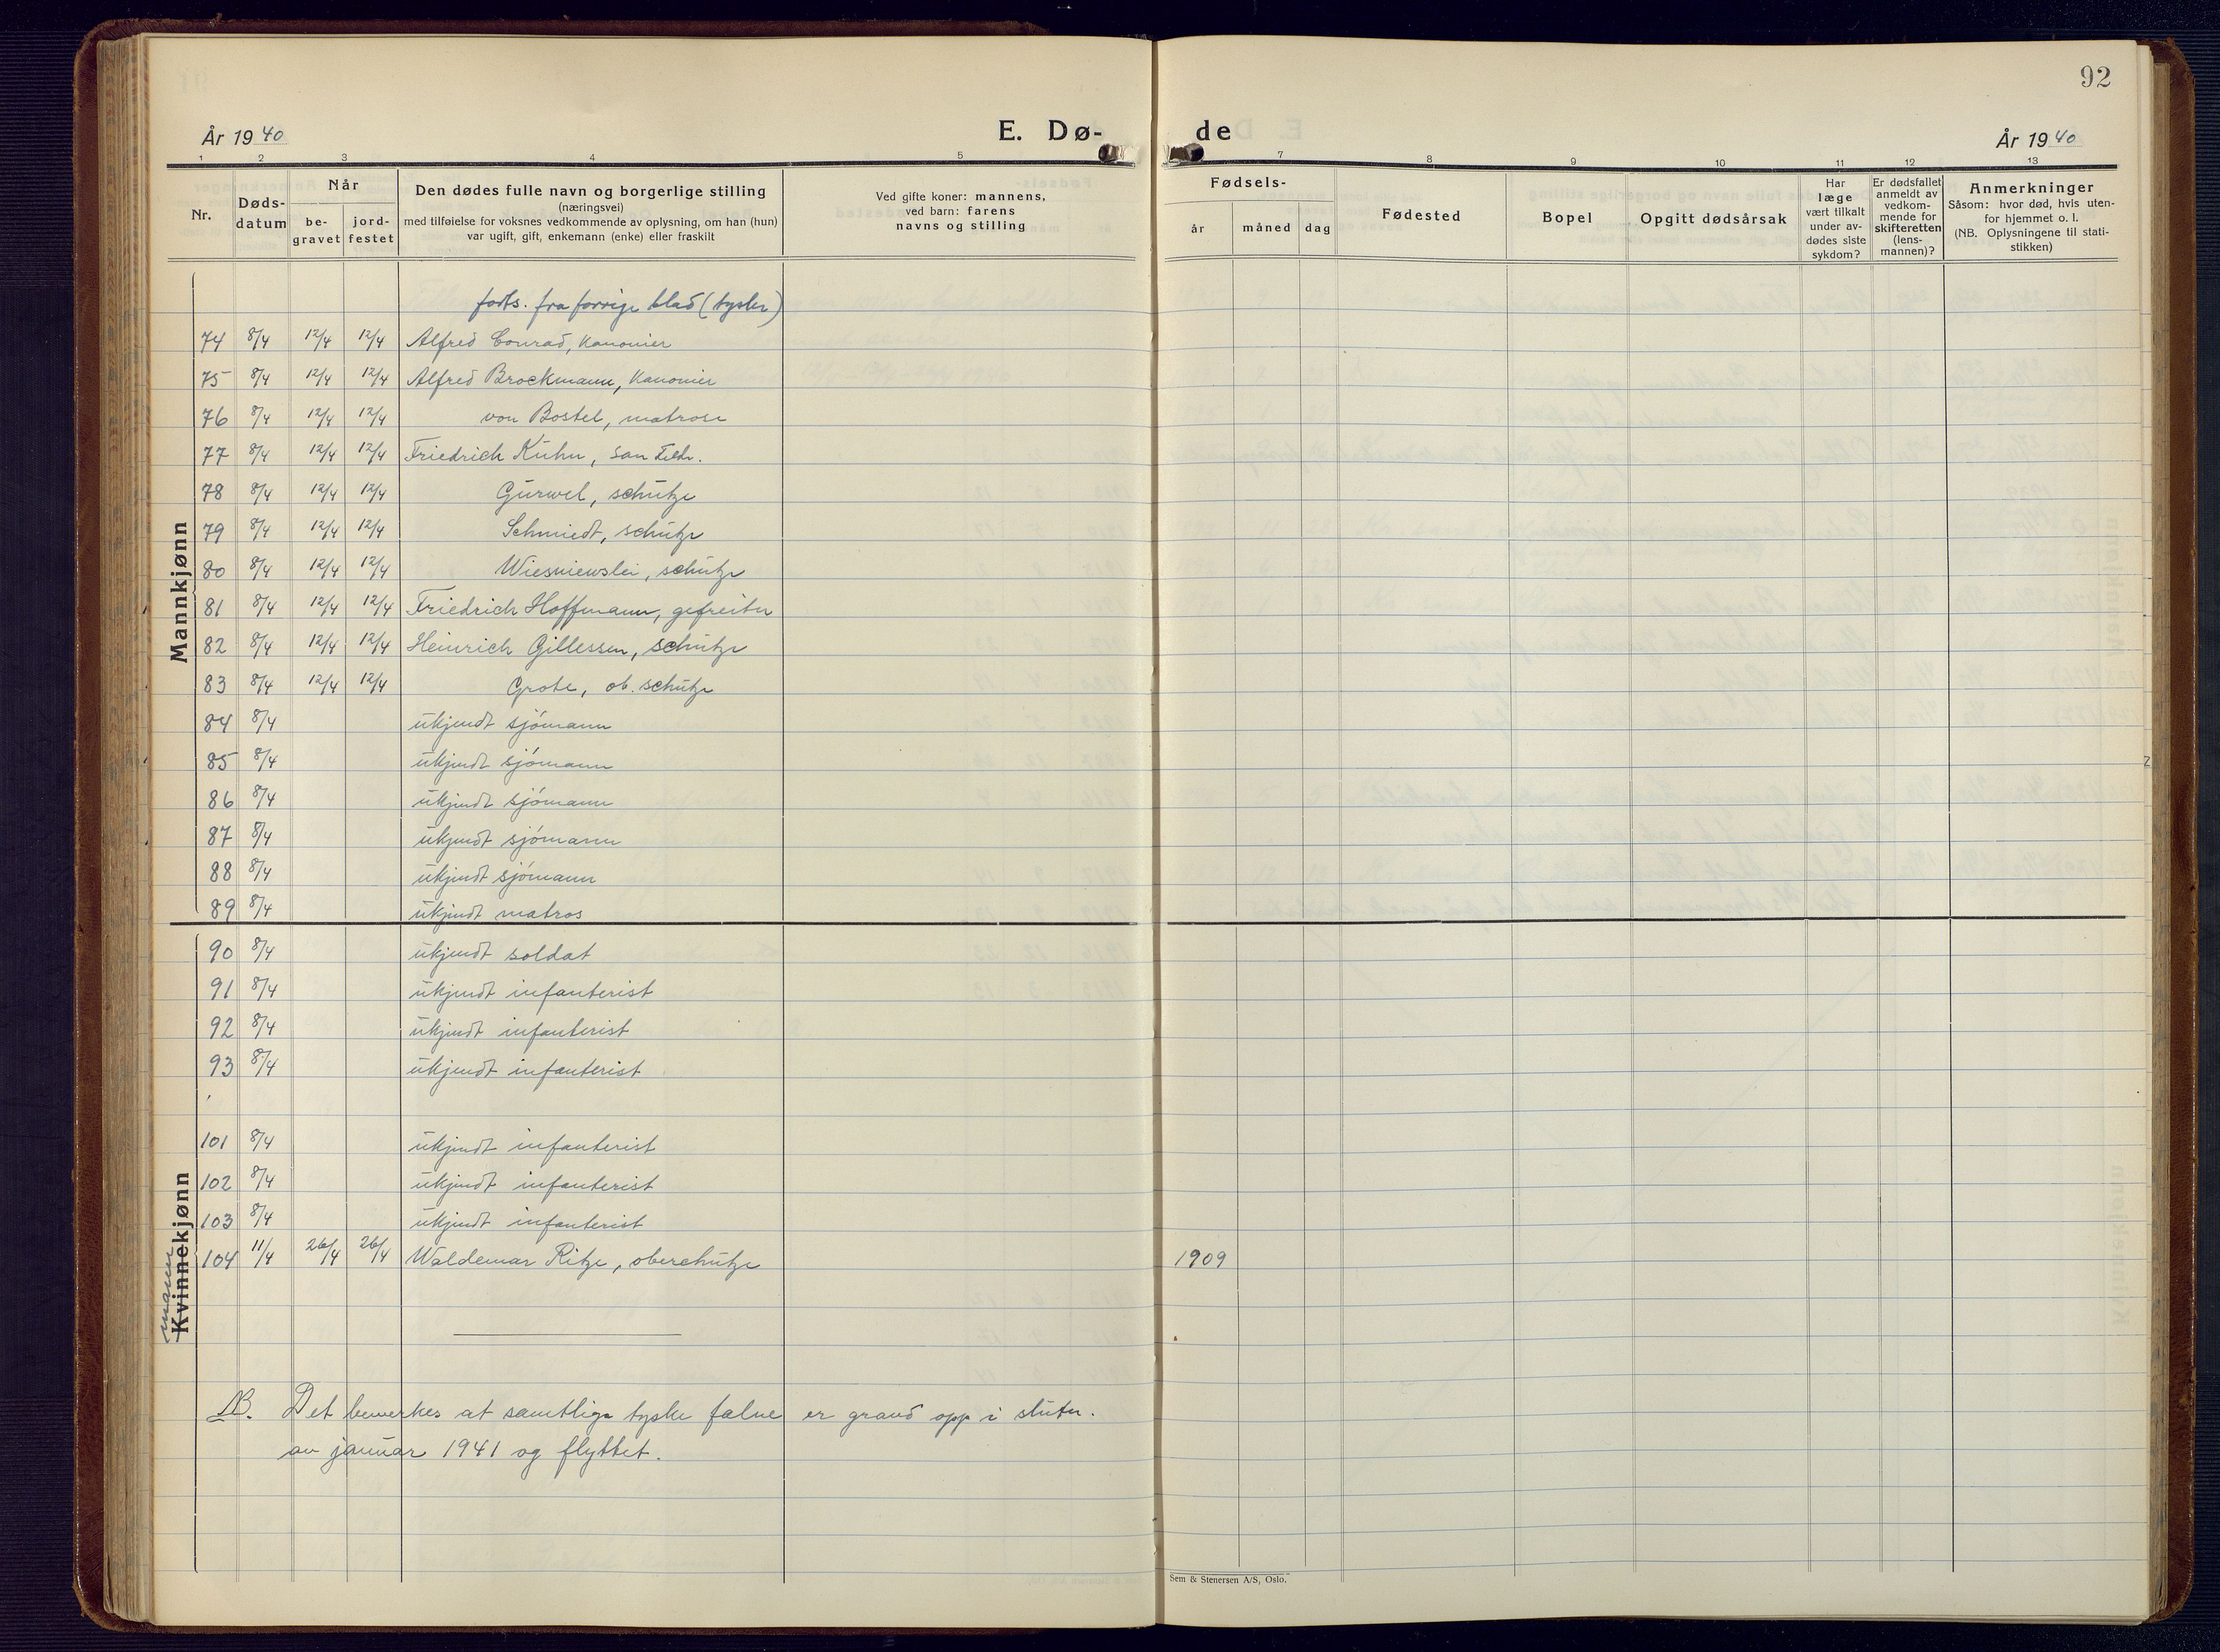 92
År 1940
E. Dø-
de
År 1940
1 2 3 4 5 7 8 9 10 11 12 13
Nr.
Døds-
datum
Når
be-
gravet
jord-
festet
Den dødes fulle navn og borgerlige stilling
(næringsvei)
med tilføielse for voksnes vedkommende av oplysning, om han (hun)
var ugift, gift, enkemann (enke) eller fraskilt
Ved gifte koner: mannens,
ved barn: farens
navns og stilling
Fødsels-
år måned dag
Fødested
Bopel
Opgitt dødsårsak
Har
læge
vært tilkalt
under av-
dødes siste
sykdom?
Er dødsfallet
anmeldt av
vedkom-
mende for
skifteretten
(lens-
mannen)?
Anmerkninger
Såsom: hvor død, hvis uten-
for hjemmet o. l.
(NB. Oplysningene til stati-
stikken)
Mannkjønn
forts. fra forrige blad (tyske)
74 8/4 12/4 12/4 Alfred Conrad, Kanonier
75 8/4 12/4 12/4 Alfred Brockmann, Kanonier
76 8/4 12/4 12/4 von Bostel, matrose
77 8/4 12/4 12/4 Friedrich Kühn, San
78 8/4 12/4 12/4 Gurwel, schütze
79 8/4 12/4 12/4 Schmiedt, schütze
80 8/4 12/4 12/4 Wiesniewslei, schütze
81 8/4 12/4 12/4 Friedrich Hoffmann, gefreiter
82 8/4 12/4 12/4 Heinrich Gillessen, schütze
83 8/4 12/4 12/4 Grote, ob. schütze
84 8/4 ukjendt sjómann
85 8/4 ukjendt sjómann
86 8/4 ukjendt sjómann
87 8/4 ukjendt sjómann
88 8/4 ukjendt sjómann
89 8/4 ukjendt matros
90 8/4 ukjendt soldat
91 8/4 ukjendt infanterist
92 8/4 ukjendt infanterist
93 8/4 ukjendt infanterist
101 8/4 ukjendt infanterist
102 8/4 ukjendt infanterist
103 8/4 ukjendt infanterist
104 11/4 26/4 26/4 Waldemar Ritze, oberschütze 1909
Kvinnekjønn
mann
NB. Det bemerkes at samtlige tyske falne er gravd opp i sluten.
av januar 1941 og flyttet.
Sem & Stenersen A/S, Oslo.